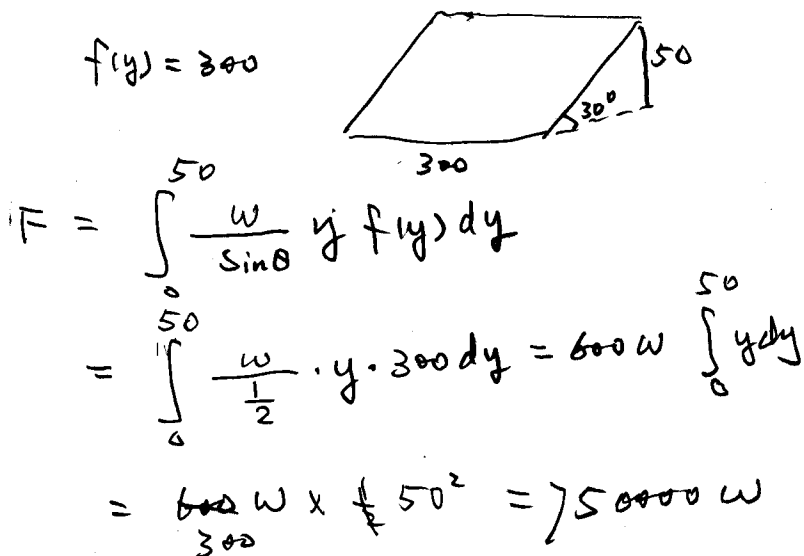 f(y) = 300
50
30°
300
F = ∫₀⁵⁰ w/sinθ y f(y) dy
= ∫₀⁵⁰ w/(1/2) · y · 300 dy = 600 w ∫₀⁵⁰ y dy
= 300 w × 50² = 750000 w